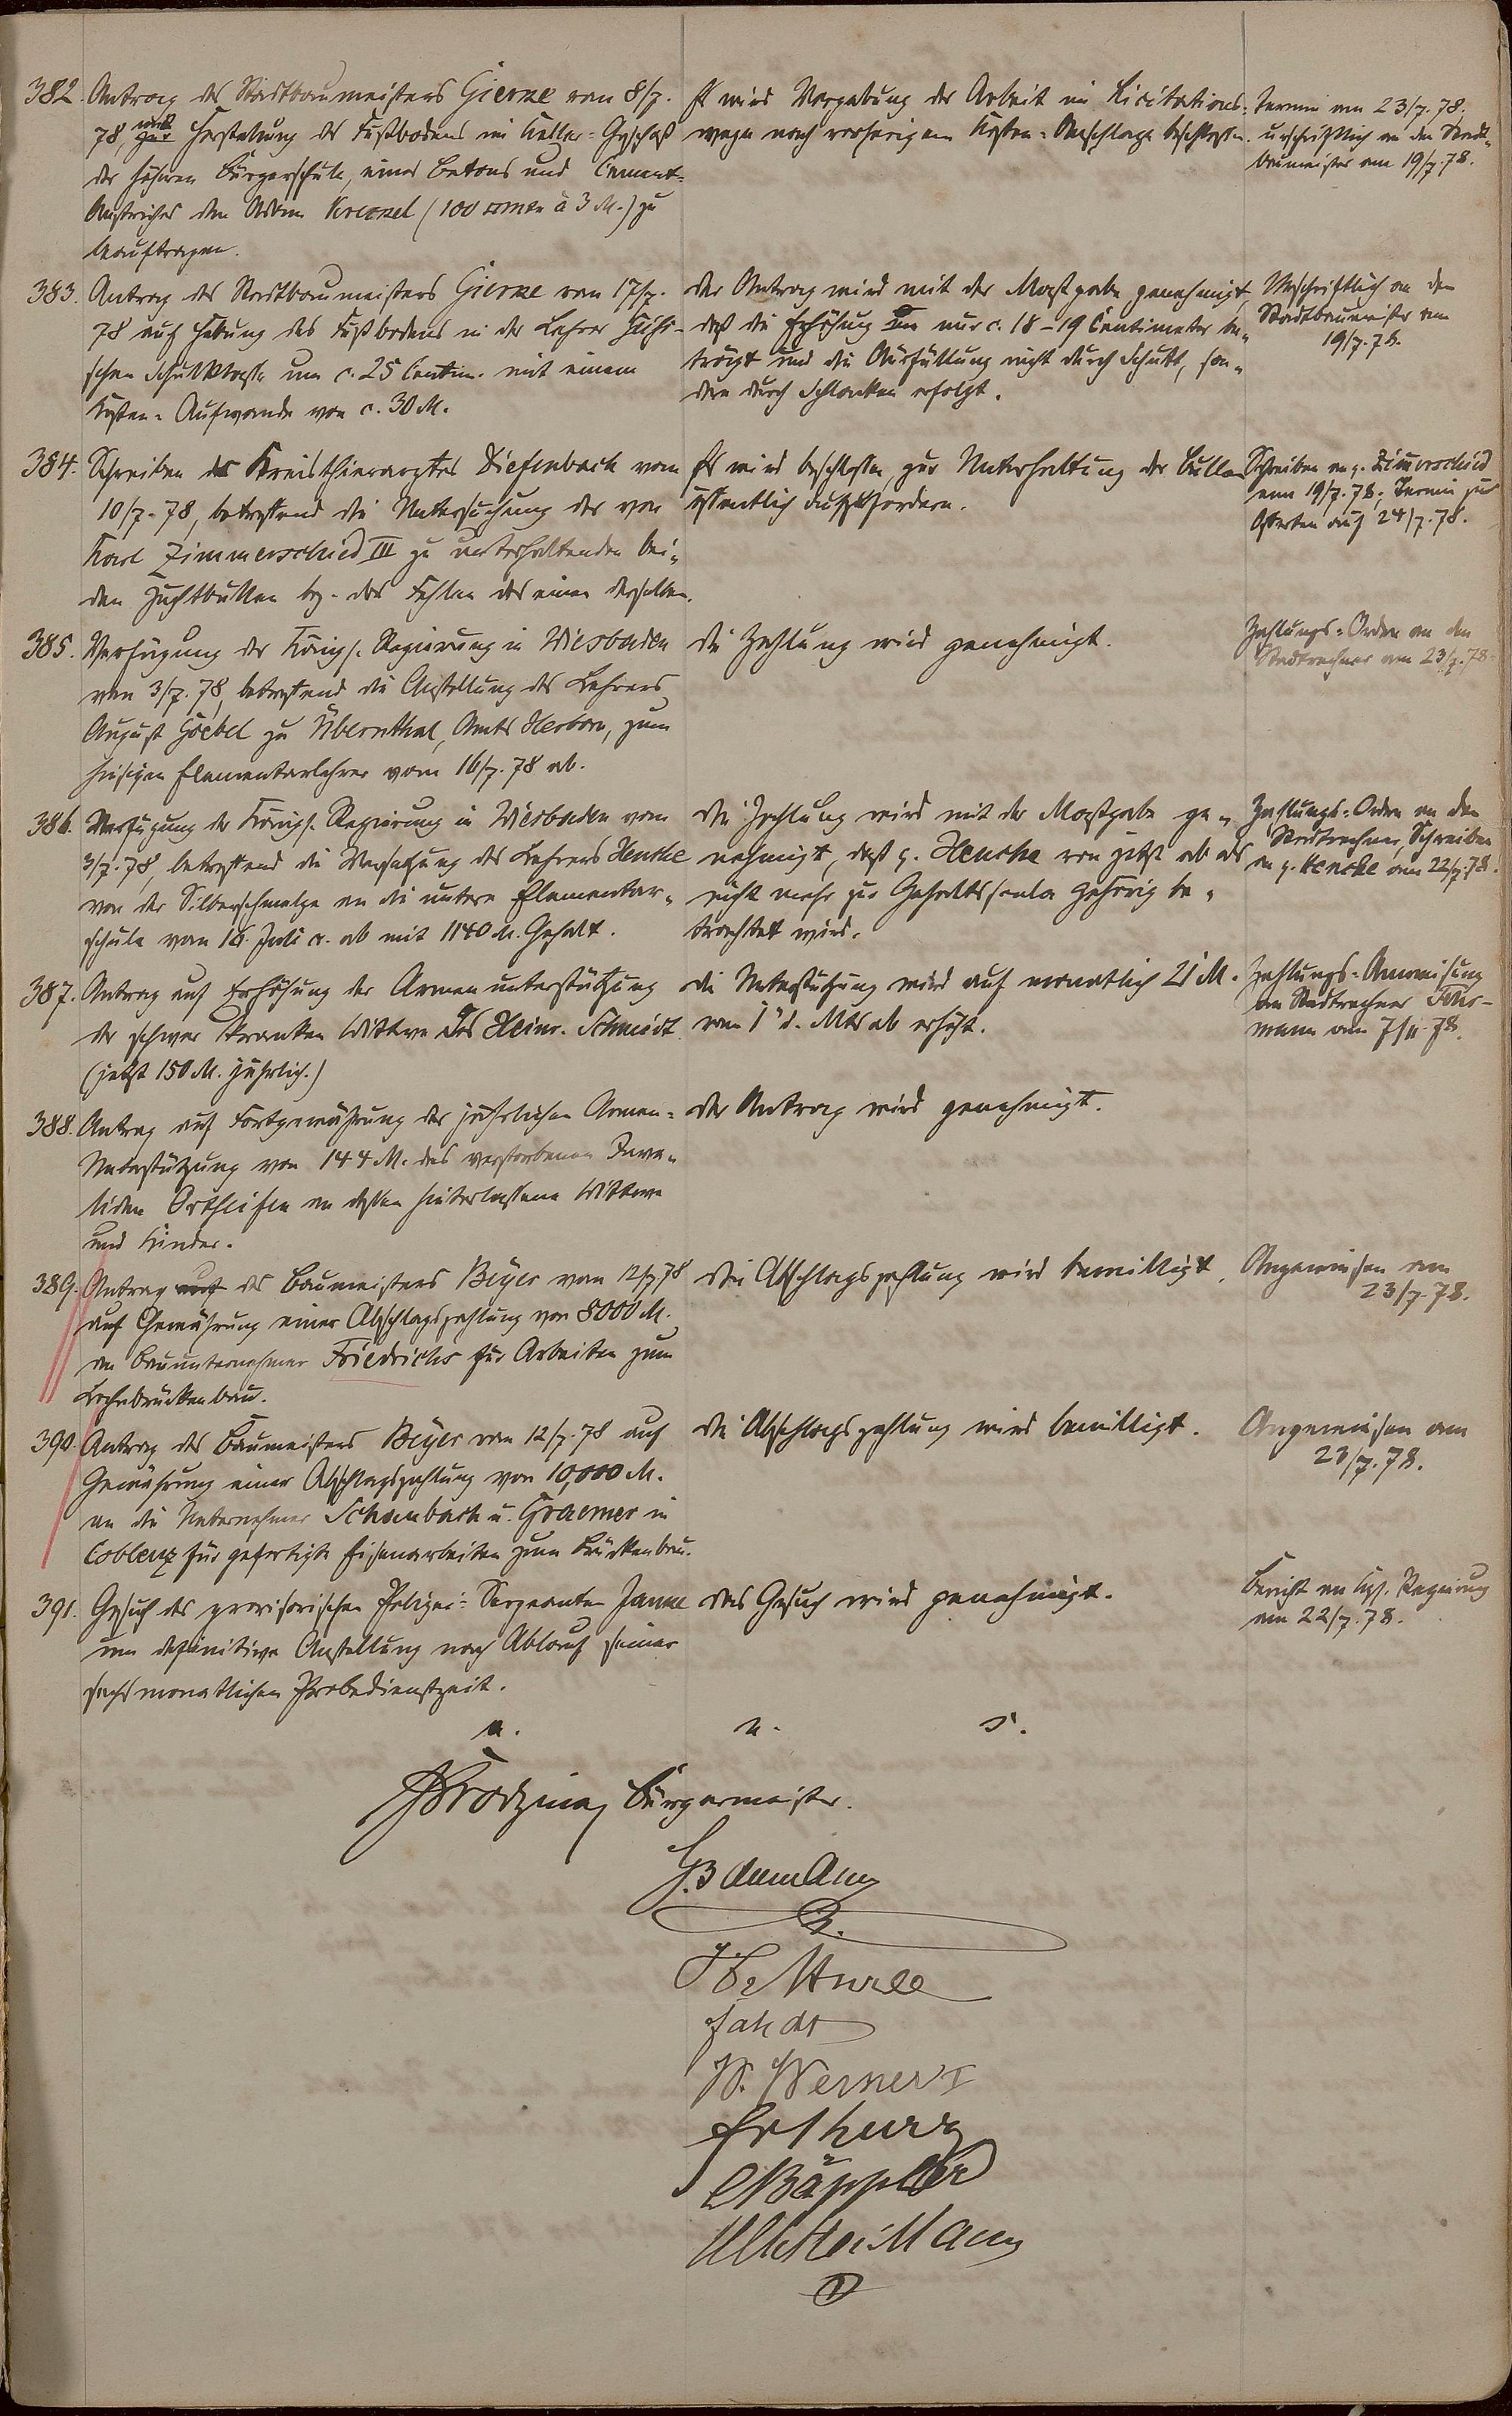 382. Antrag des Stadtbaumeisters Gierke vom 8/7.
78, mit Herstellung des Fußbodens im Keller-Geschoß
der höheren Bürgerschule, eines Betons und Cement-
Anstriches den Adam Krenzel (100 à 3 M.) zu
beauftragen.
Es wird Vergebung der Arbeit im Licitations-
wege nach vorherigem Kosten-Anschlage beschlossen.
Termin am 23/7. 78.
urschriftlich an den Stadt-
baumeister am 19/7. 78.
383. Antrag des Stadtbaumeisters Gierke vom 17/7.
78 auf Hebung des Fußbodens in der Lehrer
schen Schulklasse um c. 25 Centim. mit einem
Kosten-Aufwande von c. 30 M.
Der Antrag wird mit der Maßgabe genehmigt,
daß die Erhöhung nur c. 18-19 Centimeter be-
trägt und die Ausfüllung nicht durch Schutt, son-
dern durch Schlacken erfolgt.
Urschriftlich an den
Stadtbaumeister am
19/7. 78.
384. Schreiben des Kreisthierarztes Diefenbach vom
10/7. 78, betreffend die Untersuchung der von
Karl Zimmerschied III zu unterhaltenden bei-
den Zuchtbullen bz. des Fehlen des einen derselben.
Es wird beschlossen, zur Unterhaltung der Bullen
öffentlich aufzufordern.
Schreiben an p. Zimmerschied
am 19/7. 78; Termin zur
Offerten auf 24/7. 78.
385. Verfügung der Königl. Regierung in Wiesbaden
vom 3/7. 78, betreffend die Anstellung des Lehrers
August Goebel zu Übernthal, Amts Herborn, zum
hiesigen Elementarlehrer vom 16/7. 78 ab.
Die Zahlung wird genehmigt.
Zahlungs-Ordre an den
Stadtrechner am 23/7. 78.
386. Verfügung der Königl. Regierung in Wiesbaden vom
3/7. 78, betreffend die Versetzung des Lehrers Hencke
von der Silberschmelze an die untere Elementar-
schule vom 16. Juli cr. ab mit 1140 M. Gehalt.
Die Zahlung wird mit der Maßgabe ge-
nehmigt, daß p. Hencke von jetzt ab als
nicht mehr zur Gehaltsscala gehörig be-
trachtet wird.
Zahlungs-Ordre an den
Stadtrechner, Schreiben
an p. Hencke am 22/7. 78.
387. Antrag auf Erhöhung der Armenunterstützung
der schwer kranken Wittwe des Heinr. Schmidt
(jetzt 150 M. jährlich.)
Die Unterstützung wird auf monatlich 21 M.
vom 1. d. Mts ab erhöht.
Zahlungs-Anweisung
am Stadtrechner Fohr-
mann am 7/11. 78.
388. Antrag auf Fortgewährung der jährlichen Armen-
Unterstützung von 144 M. des verstorbenen Inva-
liden an dessen hinterlassene Wittwe
und Kinder.
Der Antrag wird genehmigt.
389. Antrag auf des Baumeisters Beyer vom 12/7. 78
auf Gewährung einer Abschlagszahlung von 8000 M.
an Bauunternehmer Friedrichs für Arbeiten zum
Lahnbrückenbau.
Die Abschlagszahlung wird bewilligt.
Angewiesen am
23/7. 78.
390. Antrag des Baumeisters Beyer vom 12/7. 78 auf
Gewährung einer Abschlagszahlung von 10,000 M.
an die Unternehmer Schaubach u. Graemer in
Coblenz für gefertigte Eisenarbeiten zum Brückenbau.
Die Abschlagszahlung wird bewilligt.
Angewiesen am
23/7. 78.
391. Gesuch des provisorischen Polizei-Sergeanten Janke
um definitive Anstellung nach Ablauf seiner
sechsmonatlichen Probedienstzeit.
Das Gesuch wird genehmigt.
Bericht an Kgl. Regierung
am 22/7. 78.
a. u. s.
Bürgermeister.
G. Baumann
W. Werner I